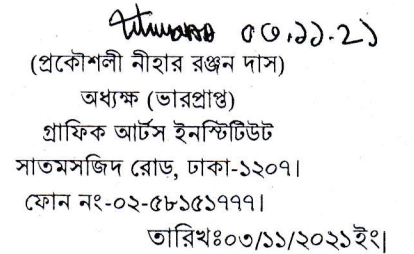 ০৩.১১.২১
(প্রকৌশলী নীহার রঞ্জন দাস)
অধ্যক্ষ (ভারপ্রাপ্ত)
গ্রাফিক আর্টস ইনস্টিটিউট
সাতমসজিদ রোড়, ঢাকা-১২০৭।
ফোন নং-০২-৫৮১৫১৭৭৭।
তারিখঃ০৩/১১/২০২১ইং|